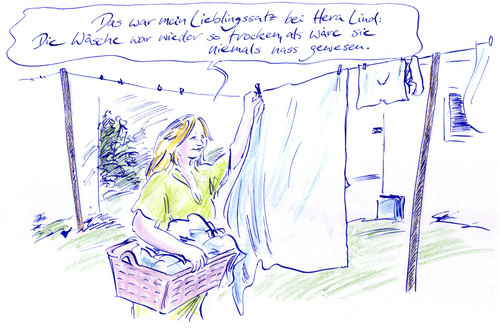 Das war mein Lieblingssatz bei Hera Lind:
Die Wäsche war wieder so trocken, als wäre sie
niemals nass gewesen.